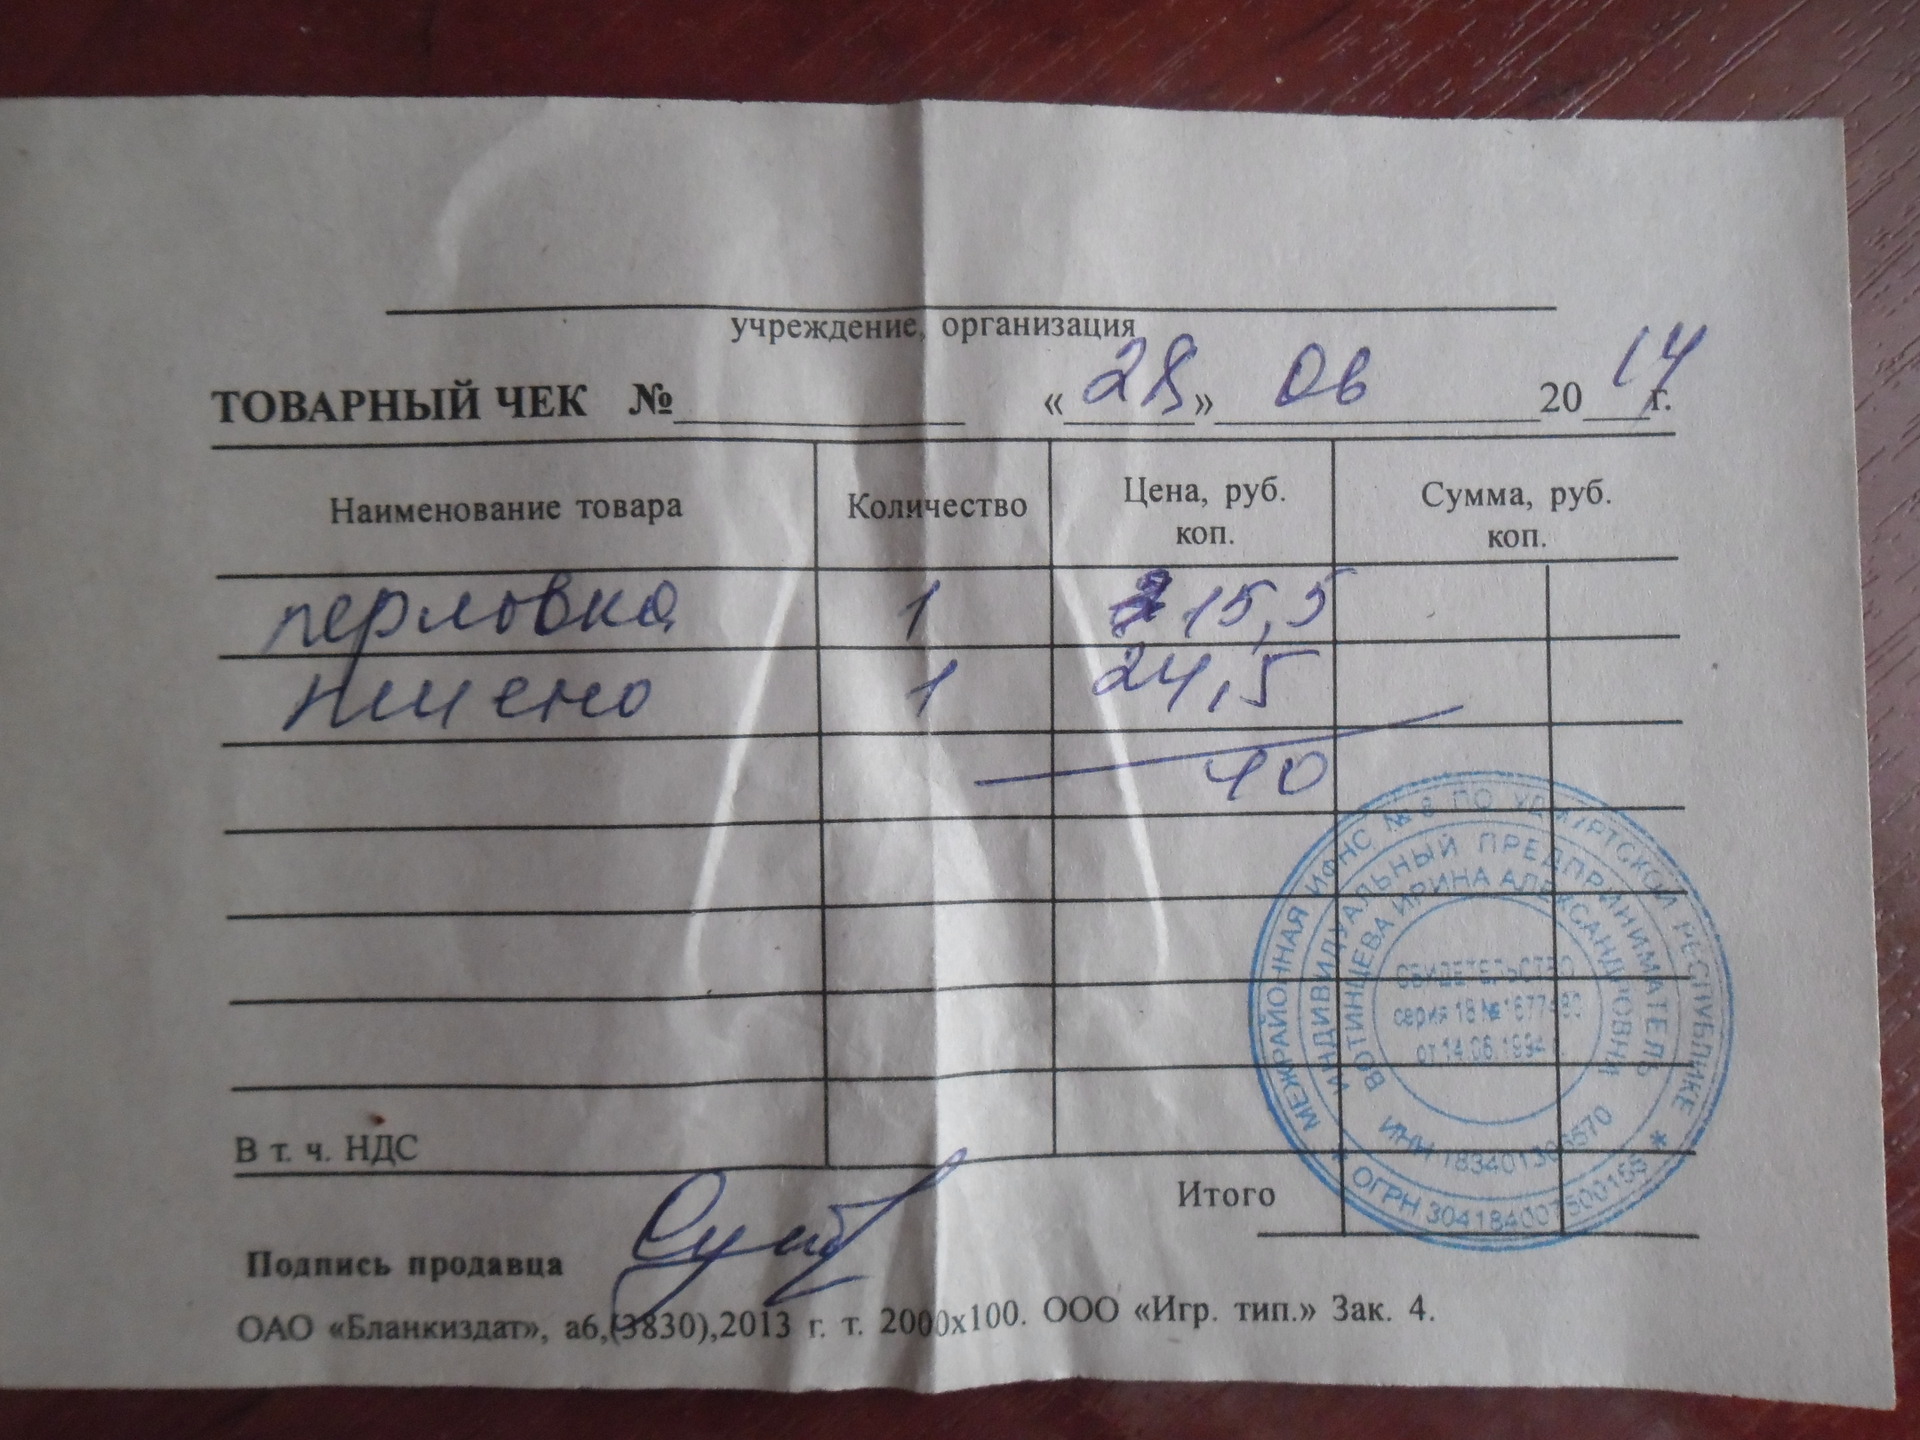 учреждение, организация
ТОВАРНЫЙ ЧЕК № « 28 » 06 20 14 г.
Наименование товара Количество Цена, руб. коп. Сумма, руб. коп.
перловка 1 15,5
пшено 1 24,5
40
МЕЖРАЙОННАЯ ИФНС № 8 ПО УДМУРТСКОЙ РЕСПУБЛИКЕ
ИНДИВИДУАЛЬНЫЙ ПРЕДПРИНИМАТЕЛЬ
ВОТИНЦЕВА ИРИНА АЛЕКСАНДРОВНА
СВИДЕТЕЛЬСТВО
серия 18 №
от 14.06.1994 г.
ИНН
* ОГРН *
В т. ч. НДС
Итого
Подпись продавца
ОАО «Бланкиздат», а6,(3830),2013 г. т. 2000х100. ООО «Игр. тип.» Зак. 4.